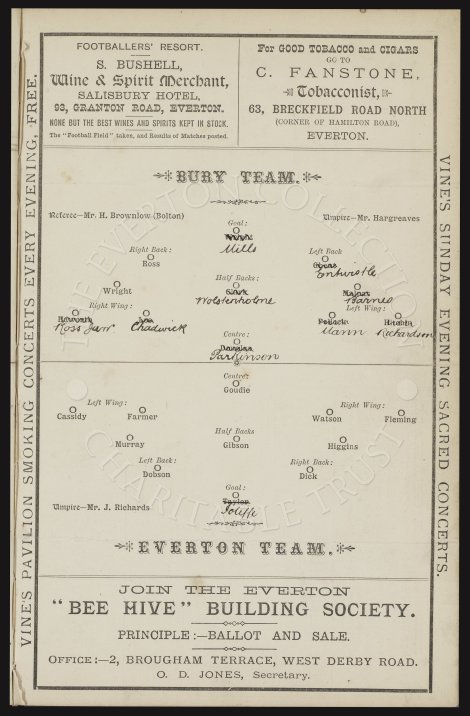 FOOTBALLERS' RESORT.
S. BUSHELL,
Wine & Spirit Merchant,
SALISBURY HOTEL,
93, GRANTON ROAD, EVERTON.
NONE BUT THE BEST WINES AND SPIRITS KEPT IN STOCK.
The "Football Field" taken, and Results of Matches posted.
For GOOD TOBACCO and CIGARS
GO TO
C. FANSTONE,
Tobacconist,
63, BRECKFIELD ROAD NORTH
(CORNER OF HAMILTON ROAD),
EVERTON.
VINE'S PAVILION SMOKING CONCERTS EVERY EVENING, FREE.
VINE'S SUNDAY EVENING SACRED CONCERTS.
BURY TEAM.
Referee—Mr. H. Brownlow (Bolton)
Umpire—Mr. Hargreaves
Goal:
Mills
Right Back:
Ross
Left Back
Entwistle
Half Backs:
Wright
Clark
Wolstenholme
Barnes
Right Wing:
Left Wing:
Howarth
Ross Junr
Chadwick
Pollock
Mann
Richardson
Centre:
Douglas
Parkinson
Centre:
Goudie
Left Wing:
Right Wing:
Cassidy
Farmer
Watson
Fleming
Half Backs
Murray
Gibson
Higgins
Left Back:
Dobson
Right Back:
Dick
Goal:
Taylor
Joliffe
Umpire—Mr. J. Richards
EVERTON TEAM.
JOIN THE EVERTON
"BEE HIVE" BUILDING SOCIETY.
PRINCIPLE:—BALLOT AND SALE.
OFFICE:—2, BROUGHAM TERRACE, WEST DERBY ROAD.
O. D. JONES, Secretary.
THE EVERTON COLLECTION
CHARITABLE TRUST